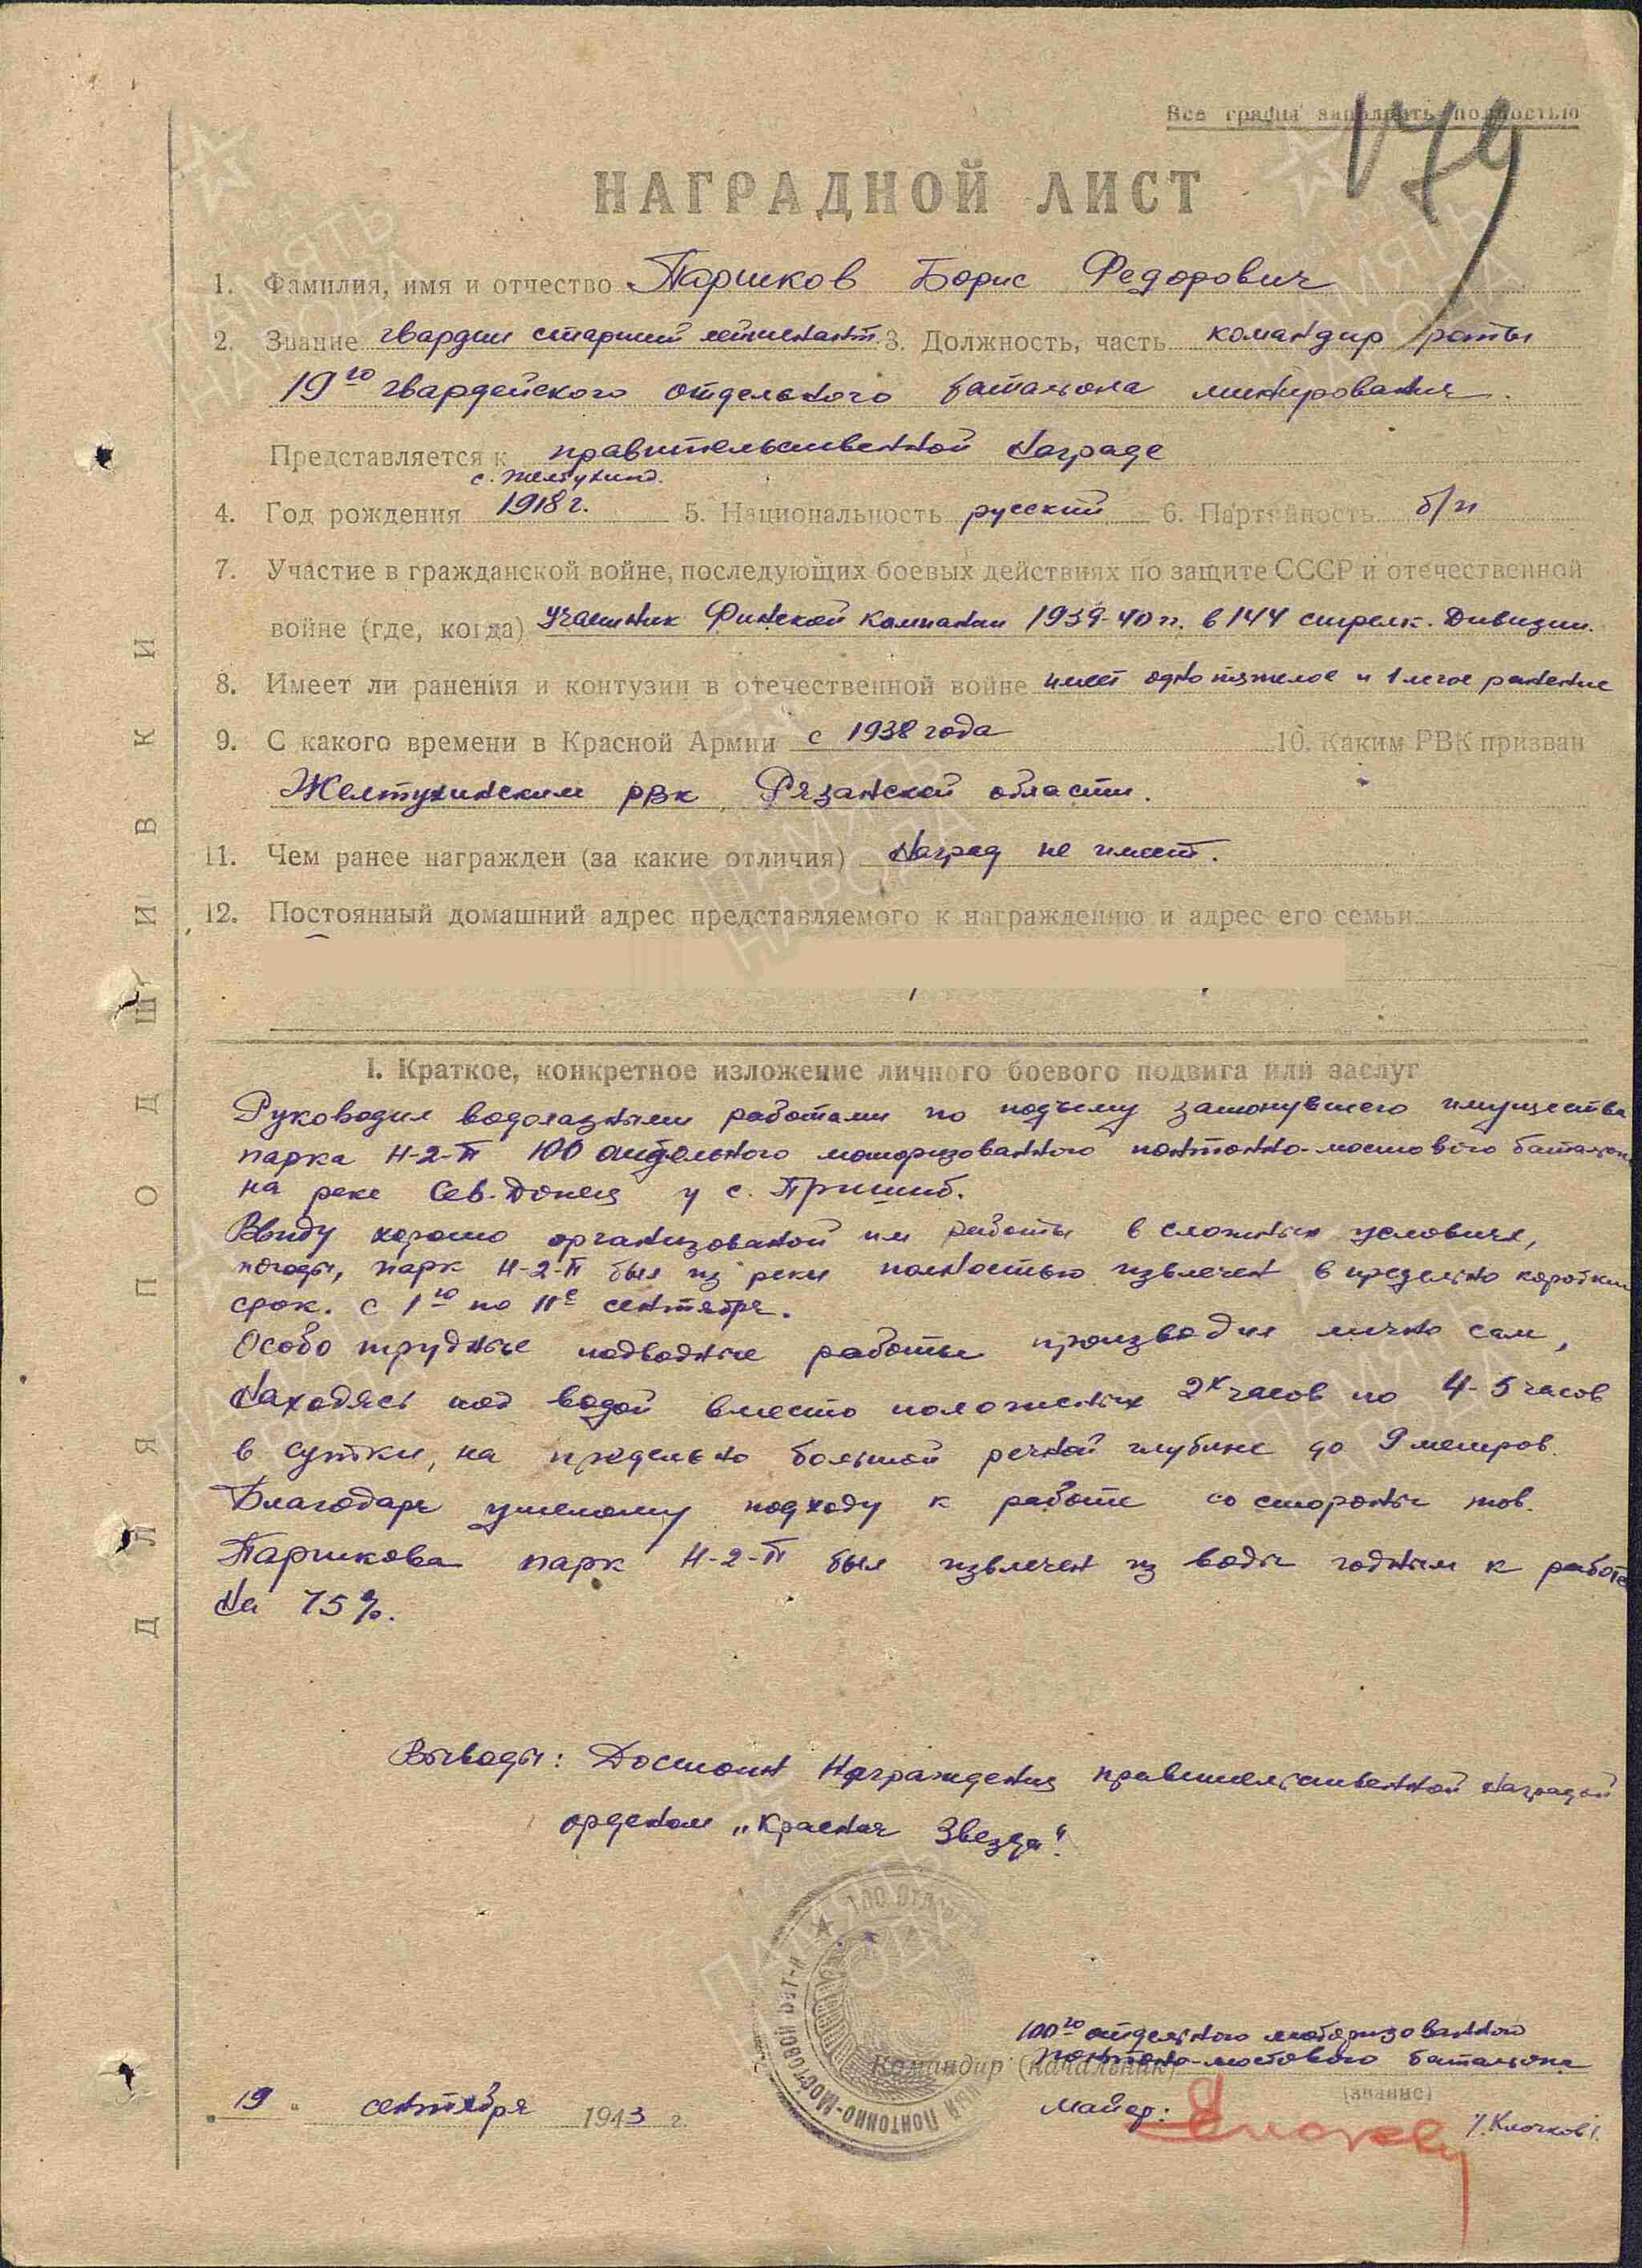 Все графы заполнять полностью
179
НАГРАДНОЙ ЛИСТ
1. Фамилия, имя и отчество Паршков Борис Федорович
2. Звание гвардии старший лейтенант 3. Должность, часть командир роты
19го гвардейского отдельного батальона минирования.
Представляется к правительственной награде
с. Желтухино.
4. Год рождения 1918г. 5. Национальность русский 6. Партийность б/п
7. Участие в гражданской войне, последующих боевых действиях по защите СССР и отечественной
войне (где, когда) Участник Финской компании 1939-40 гг. в 144 стрелк. Дивизии.
8. Имеет ли ранения и контузии в отечественной войне имеет одно тяжелое и 1 легое ранение
9. С какого времени в Красной Армии с 1938 года 10. Каким РВК призван
Желтухинским РВК Рязанской области.
11. Чем ранее награжден (за какие отличия) Наград не имеет.
12. Постоянный домашний адрес представляемого к награждению и адрес его семьи
I. Краткое, конкретное изложение личного боевого подвига или заслуг
Руководил водолазными работами по подъему затонувшего имущества
парка Н-2-П 100 отдельного моторизованного понтонно-мостового батальон
на реке Сев-Донец у с. Пришиб.
Ввиду хорошо организованой им работы в сложных условиях,
погоды, парк Н-2-П был из реки полностью извлечен в предельно короткий
срок. с 1го по 11е сентября.
Особо трудные подводные работы производил лично сам,
Находясь под водой вместо положенных 2х часов по 4-5 часов
в сутки, на предельно большой речной глубине до 9 метров.
Благодаря умелому подходу к работе со стороны тов.
Паршкова парк Н-2-П был извлечен из воды годным к работе
На 75%.
Выводы: Достоин Награждения правительственной Наградой
орденом „Красная Звезда".
100го отдельного моторизованного
понтоно-мостового батальона
Командир (начальник)
(звание)
майор: /.Клочков/.
19 " сентября 1943 г.
100 ОТД
ПОНТОННО-МОСТОВОЙ БАТ-Н
ДЛЯ ПОДШИВКИ
ПАМЯТЬ НАРОДА